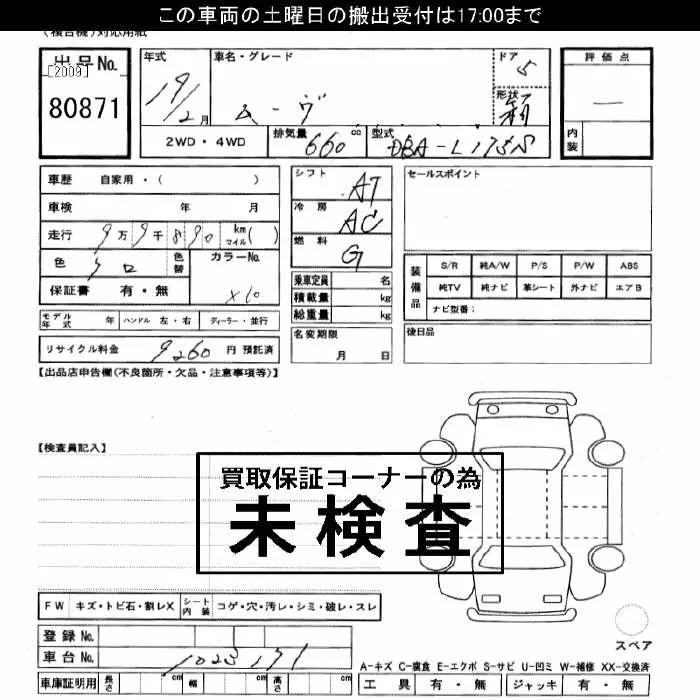 この車両の土曜日の搬出受付は17:00まで
(複合機)対応用紙
出品No. [2009] 80871
年式 19/2月
車名・グレード ムーヴ
ドア 5
形状 箱
2WD・4WD
排気量 660 cc
型式 DBA-L175S
評価点 —
内装
車歴 自家用・( )
車検 年 月
走行 9万9千890 km マイル( )
色 シロ 色替
カラーNo. X10
保証書 有・無
モデル年式 年 ハンドル 左・右 ディーラー・並行
リサイクル料金 9260 円 預託済
シフト AT
冷房 AC
燃料 G
乗車定員 名
積載量 kg
総重量 kg
名変期限 月 日
セールスポイント
装備品
S/R 純A/W P/S P/W ABS
純TV 純ナビ 革シート 外ナビ エアB
ナビ型番:
後日品
【出品店申告欄(不良箇所・欠品・注意事項等)】
【検査員記入】
買取保証コーナーの為
未検査
FW キズ・トビ石・割レX シート内装 コゲ・穴・汚レ・シミ・破レ・スレ
登録No.
車台No. 1023171
車庫証明用 長さ cm 幅 cm 高さ cm
スペア
A-キズ C-腐食 E-エクボ S-サビ U-凹ミ W-補修 XX-交換済
工具 有・無 ジャッキ 有・無